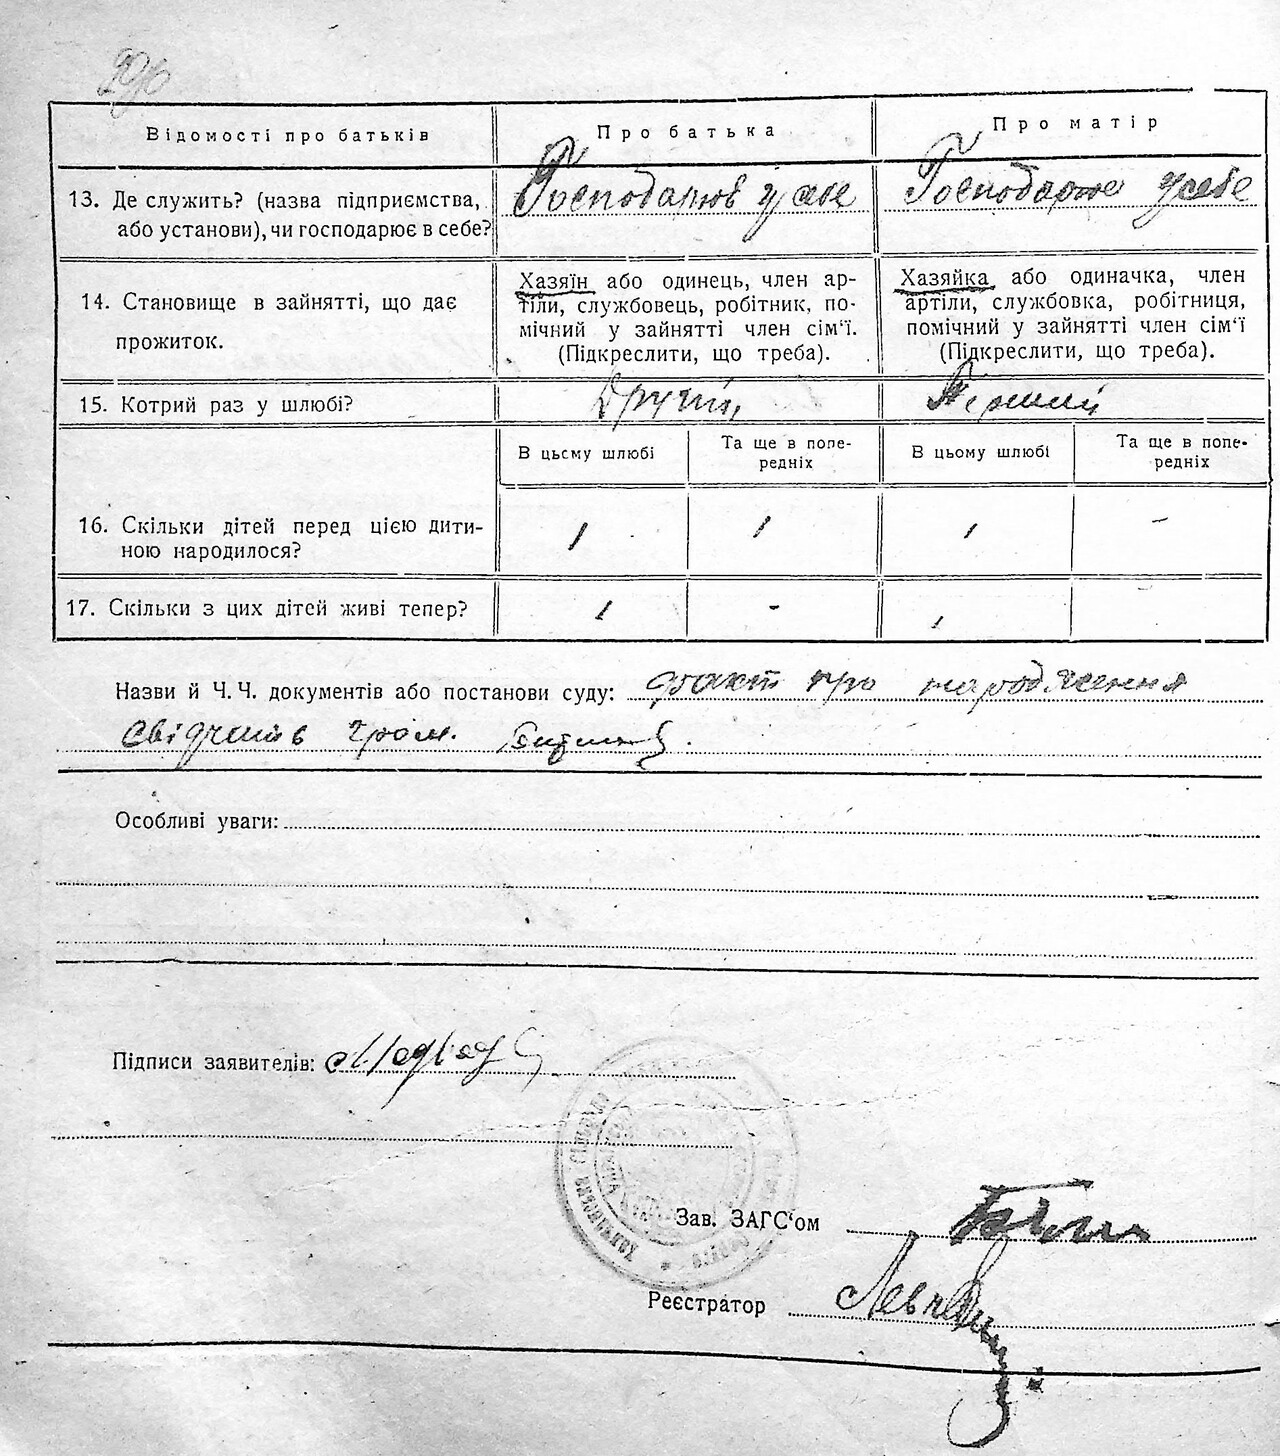 Відомості про батьків
Про батька
Про матір
13. Де служить? (назва підприємства, або установи), чи господарює в себе?
Господарюв у себе
Господарює у себе
14. Становище в зайнятті, що дає прожиток.
Хазяїн або одинець, член ар-
тіли, службовець, робітник, по-
мічний у зайнятті член сім'ї.
(Підкреслити, що треба).
Хазяйка або одиначка, член
артіли, службовка, робітниця,
помічний у зайнятті член сім'ї
(Підкреслити, що треба).
15. Котрий раз у шлюбі?
Другий
Перший
В цьсму шлюбі
Та ще в попе-
редніх
В цьому шлюбі
Та ще в попе-
редніх
16. Скільки дітей перед цією дити-
ною народилося?
1
1
1
-
17. Скільки з цих дітей живі тепер?
1
-
1
Назви й Ч. Ч. документів або постанови суду: факт про народження
свідчив гром.
Особливі уваги:
Підписи заявителів:
Зав. ЗАГС'ом
Реєстратор